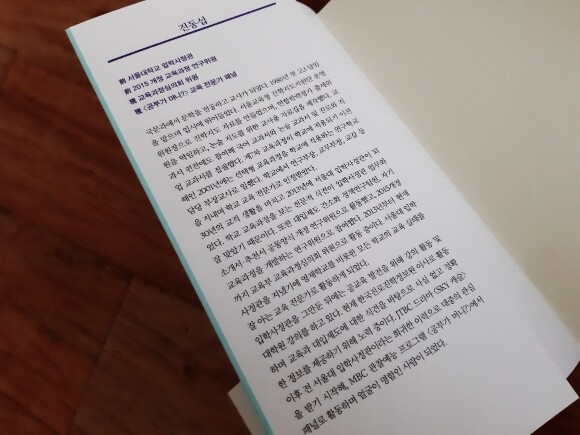 진동섭
前 서울대학교 입학사정관
前 2015 개정 교육과정 연구위원
現 교육과정심의회 위원
現 <공부가 머니?> 교육 전문가 패널
국문과에서 문학을 전공하고 교사가 되었다. 1986년 첫 고3 담임
을 맡으며 입시에 뛰어들었다. 서울교육청 진학지도지원단 운영
위원장으로 진학지도 자료를 만들었으며, 연합학력평가 출제위
원을 역임하고, 논술 지도를 위한 교사용 자료집을 제작했다. 교
과서 편찬에도 참여해 국어 교과서와 논술 교과서 및 진로와 직
업 교과서를 집필했다. 제7차 교육과정이 학교에 적용되기 시작
해인 2001년에는 선택형 교육과정을 학교에 적용하는 연구학교
담당 부장교사로 일했다. 학교에서 연구부장, 교무부장, 교감 등
을 지내며 학교 교육 전문가로 인정받았다.
30년의 교직 생활을 마치고, 2013년에 서울대 입학사정관이 되
었다. 학교 교육과정을 보는 전문적 식견이 입학사정관 업무와
잘 맞았기 때문이다. 또한 대입제도 간소화 정책연구팀원, 자기
소개서·추천서 공통양식 개정 연구위원으로 활동했고, 2015개정
교육과정을 개발하는 연구위원으로 참여했다. 2013년부터 현재
까지 교육부 교육과정심의회 위원으로 활동 중이다. 서울대 입학
사정관을 지냈기에 영재학교를 비롯한 모든 학교의 교육 실태를
잘 아는 교육 전문가로 활동하게 되었다.
입학사정관을 그만둔 뒤에는 공교육 발전을 위해 강의 활동 및
대학원 강의를 하고 있다. 현재 한국진로진학정보원 이사로 활동
하며 교육과 대입제도에 대한 식견을 바탕으로 사심 없고 정확
한 정보를 제공하기 위해 노력 중이다. JTBC 드라마 <SKY 캐슬>
이후 전 서울대 입학사정관이라는 희귀한 이력으로 대중의 관심
을 받기 시작해, MBC 관찰예능 프로그램 <공부가 머니?>에서
패널로 활동하며 얼굴이 명함인 사람이 되었다.